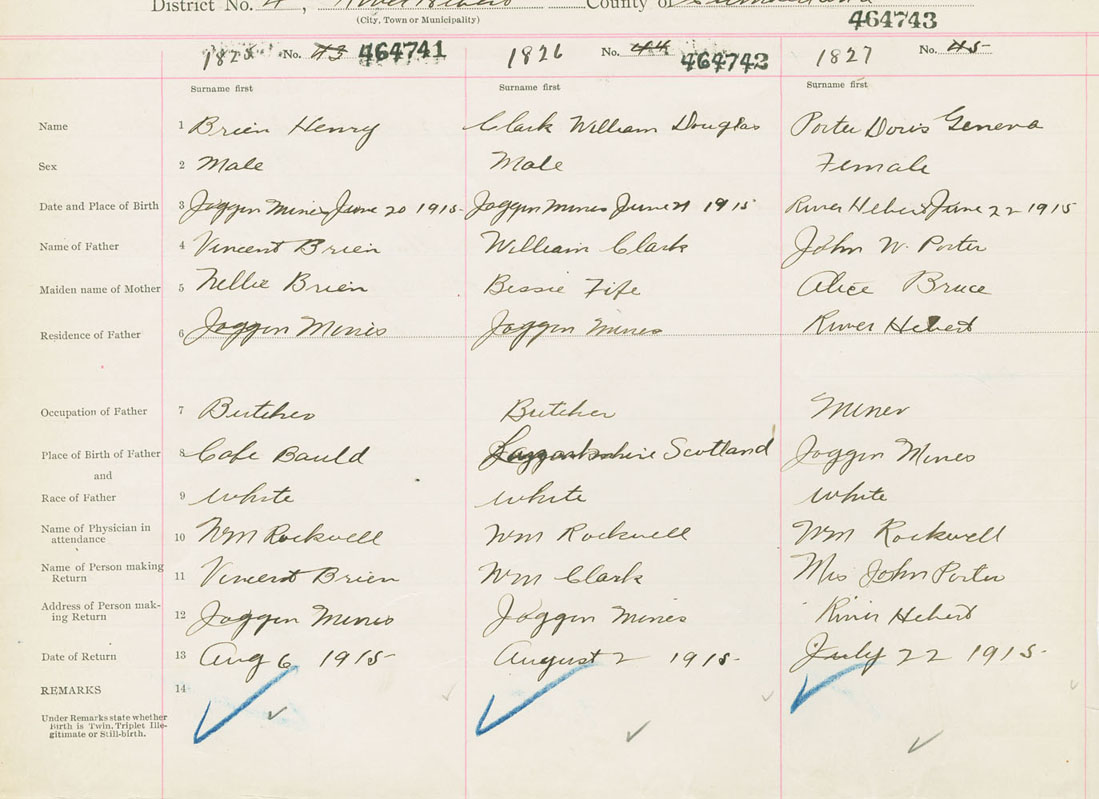 District No. 4, River Hebert County of Cumberland
(City, Town or Municipality)
464743
1825 No. 43 464741 1826 No. 44 464742 1827 No. 45
Surname first Surname first Surname first
Name 1 Brien Henry Clark William Douglas Porter Doris Geneva
Sex 2 Male Male Female
Date and Place of Birth 3 Joggin Mines June 20 1915 Joggin Mines June 21 1915 River Hebert June 22 1915
Name of Father 4 Vincent Brien William Clark John W. Porter
Maiden name of Mother 5 Nellie Brien Bessie Fife Alice Bruce
Residence of Father 6 Joggin Mines Joggin Mines River Hebert
Occupation of Father 7 Butcher Butcher Miner
Place of Birth of Father 8 Cafe Bauld Scotland Joggin Mines
and
Race of Father 9 White White White
Name of Physician in
attendance 10 Wm Rockwell Wm Rockwell Wm Rockwell
Name of Person making
Return 11 Vincent Brien Wm Clark Mrs John Porter
Address of Person mak-
ing Return 12 Joggin Mines Joggin Mines River Hebert
Date of Return 13 Aug 6 1915 August 2 1915 July 22 1915
REMARKS 14
Under Remarks state whether
Birth is Twin, Triplet Ille-
gitimate or Still-birth.